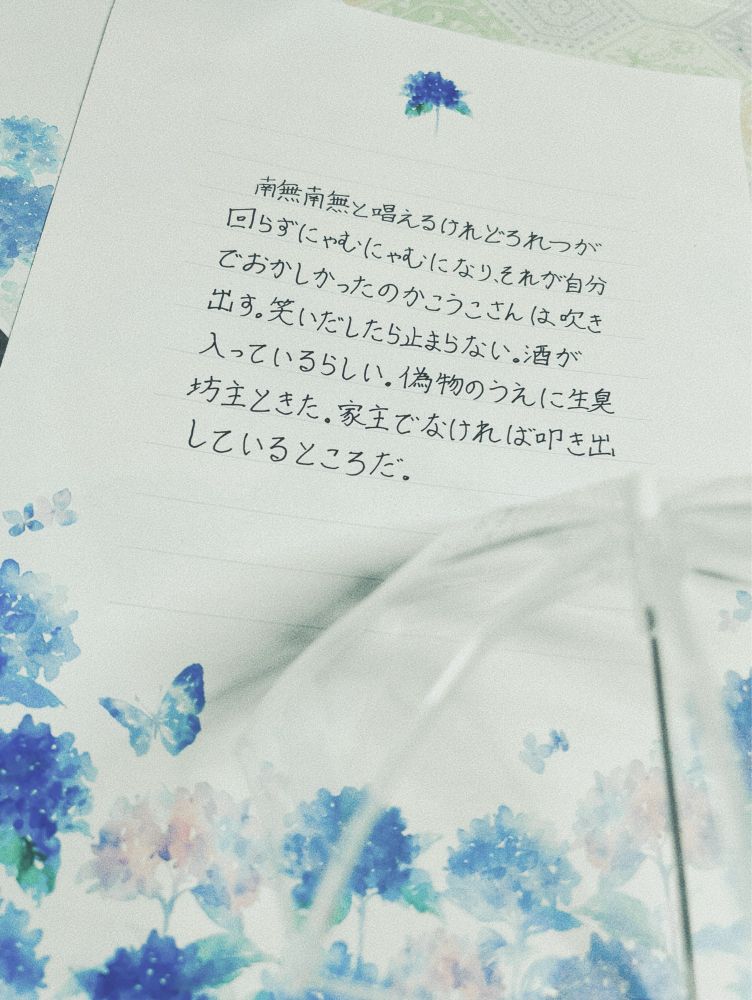 南無南無と唱えるけれどろれつが
回らずにゃむにゃむになり、それが自分
でおかしかったのかこうこさんは吹き
出す。笑いだしたら止まらない。酒が
入っているらしい。偽物のうえに生臭
坊主ときた。家主でなければ叩き出
しているところだ。